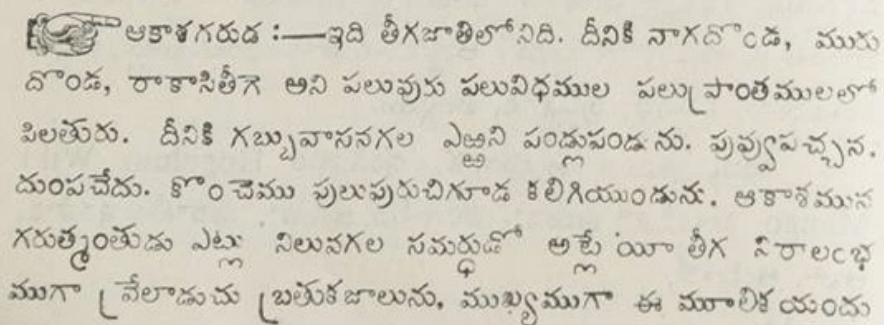 ఆకాశగరుడ :—ఇది తీగజాతిలోనిది. దీనికి నాగదొండ, మురు
దొండ, రాకాసితీగె అని పలువురు పలువిధముల పలుప్రాంతములలో
పిలతురు. దీనికి గబ్బువాసనగల ఎఱ్ఱని పండ్లుపండును. పువ్వుపచ్చన.
దుంపచేదు. కొంచెము పులుపురుచిగూడ కలిగియుండును. ఆకాశమున
గరుత్మంతుడు ఎట్లు నిలువగల సమర్ధుడో అట్లే యీ తీగ నిరాలంభ
ముగా వ్రేలాడుచు బ్రతుకజాలును, ముఖ్యముగా ఈ మూలికయందు